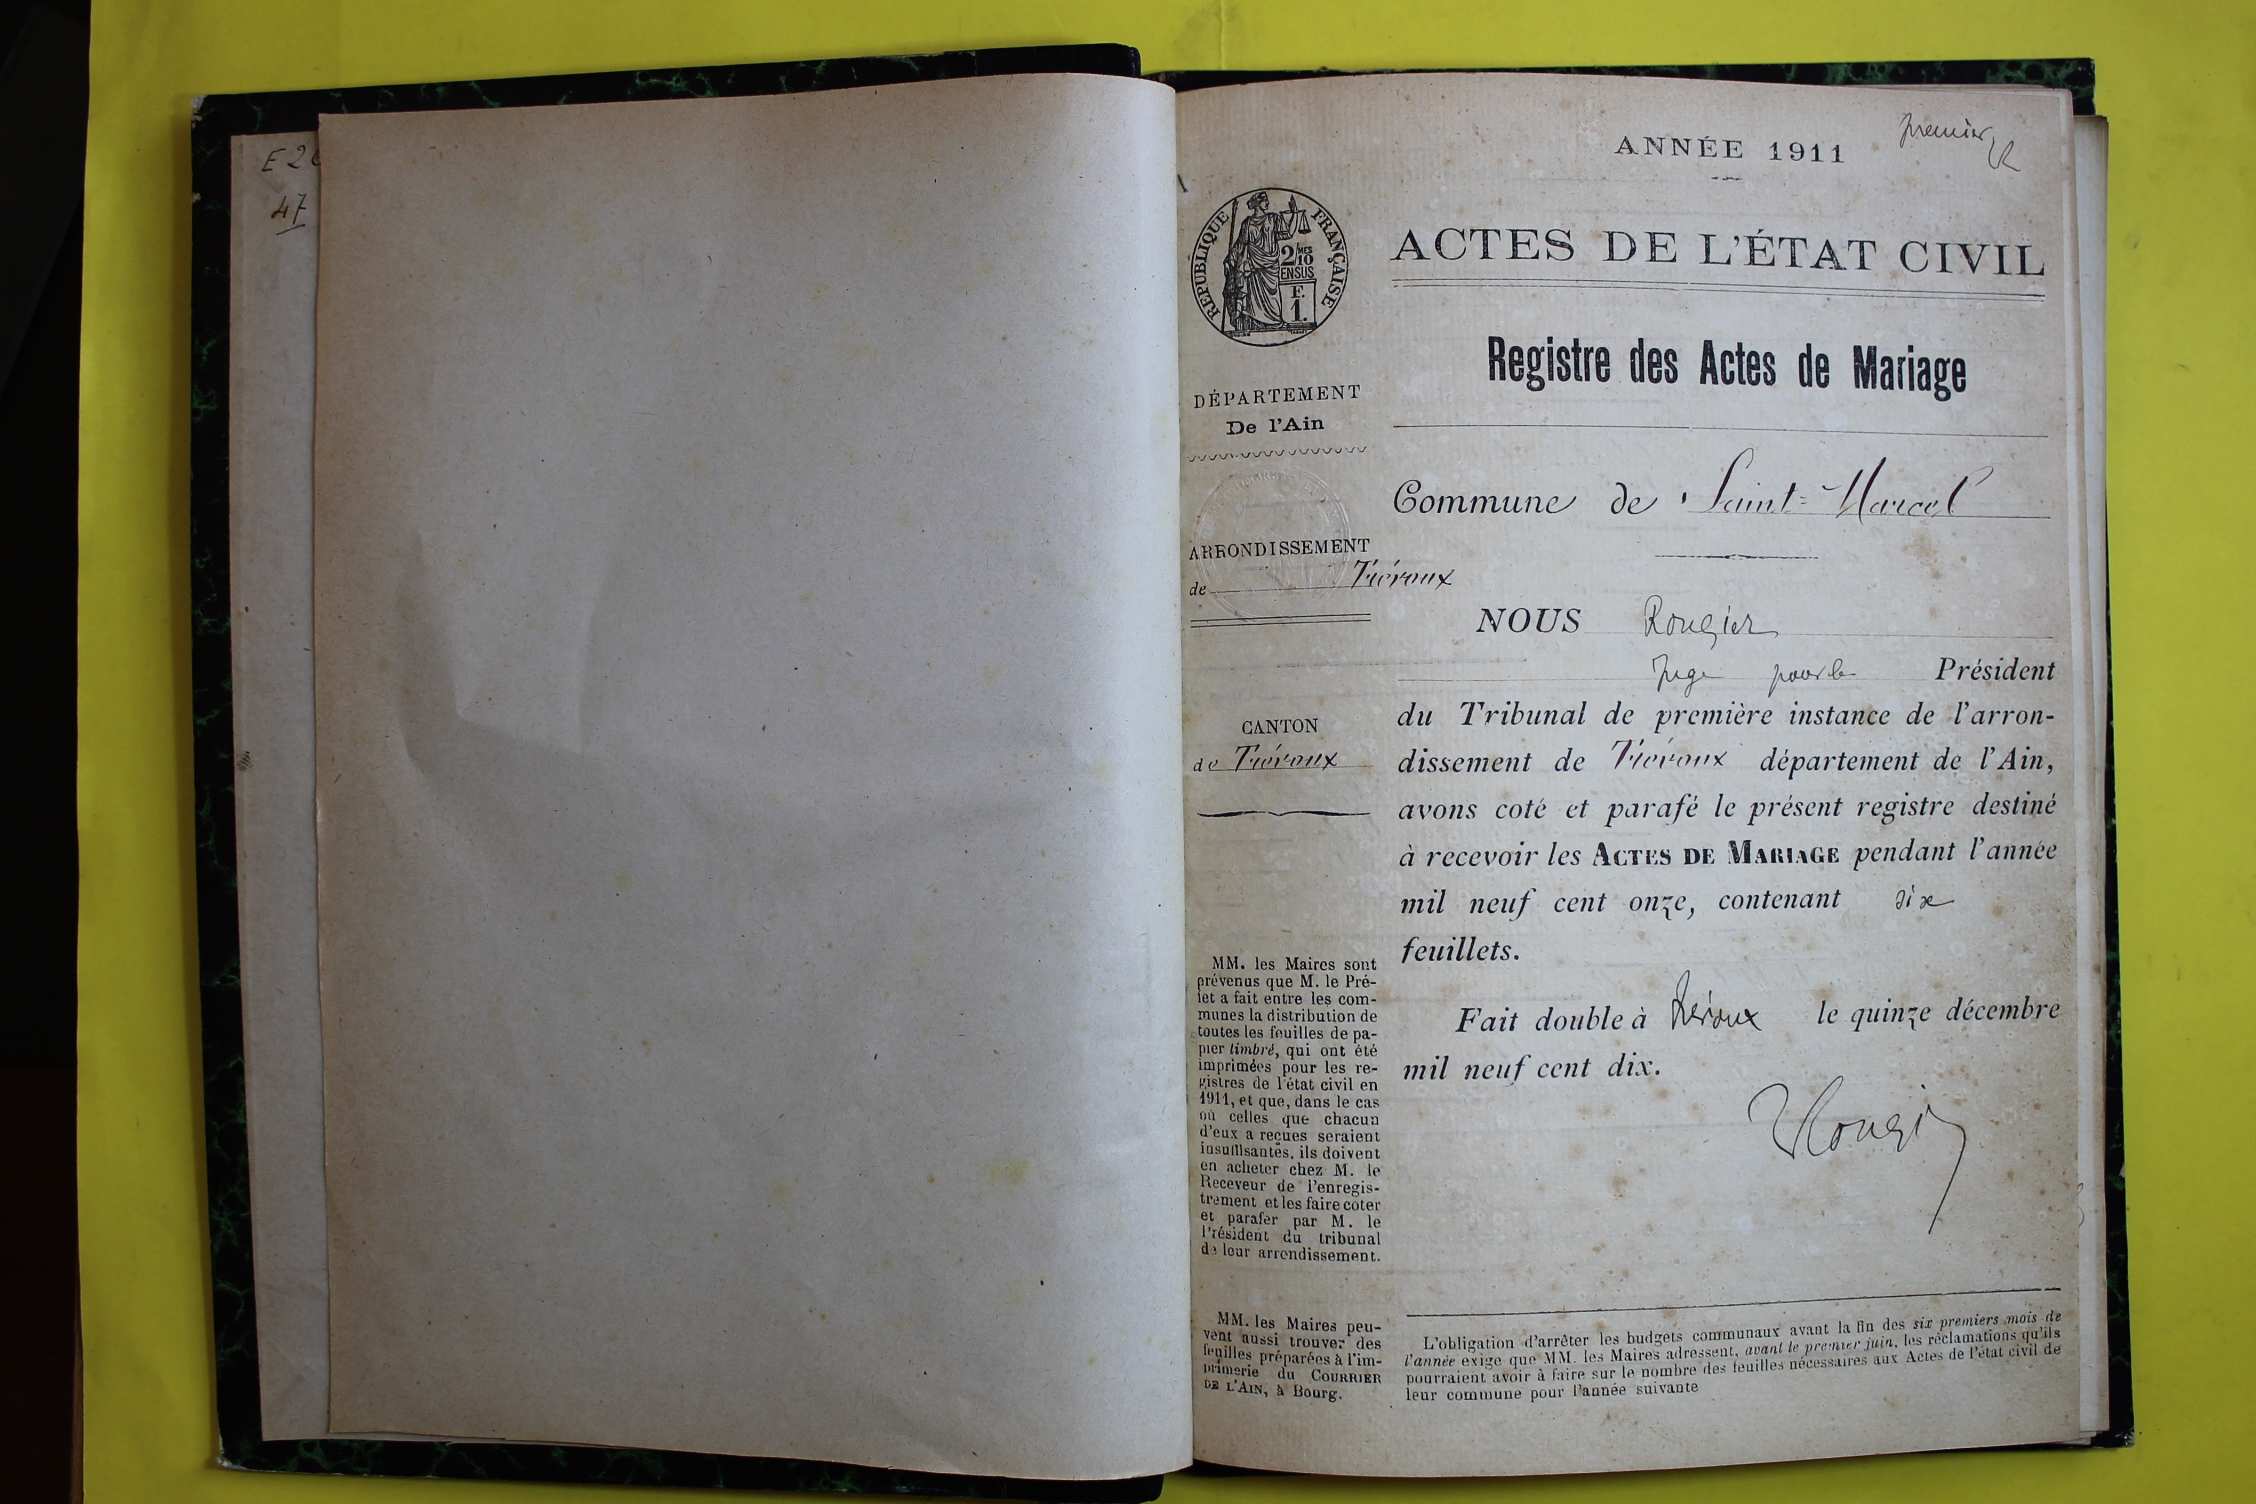 E 2
47
ANNÉE 1911
premier
R
ACTES DE L'ÉTAT CIVIL
RÉPUBLIQUE FRANÇAISE
2/10 MES
EN SUS
F.
1.
Registre des Actes de Mariage
DÉPARTEMENT
De l'Ain
Commune de Saint-Marcel
ARRONDISSEMENT
de Trévoux
NOUS Rougier
Juge pour le Président
du Tribunal de première instance de l'arron-
dissement de Trévoux département de l'Ain,
avons coté et parafé le présent registre destiné
à recevoir les ACTES DE MARIAGE pendant l'année
mil neuf cent onze, contenant six
feuillets.
Fait double à Trévoux le quinze décembre
mil neuf cent dix.
Rougier
CANTON
de Trévoux
MM. les Maires sont
prévenus que M. le Pré-
fet a fait entre les com-
munes la distribution de
toutes les feuilles de pa-
pier timbré, qui ont été
imprimées pour les re-
gistres de l'état civil en
1911, et que, dans le cas
où celles que chacun
d'eux a reçues seraient
insuffisantes, ils doivent
en acheter chez M. le
Receveur de l'enregis-
trement et les faire coter
et parafer par M. le
Président du tribunal
de leur arrondissement.
MM. les Maires peu-
vent aussi trouver des
feuilles préparées à l'im-
primerie du COURRIER
DE L'AIN, à Bourg.
L'obligation d'arrêter les budgets communaux avant la fin des six premiers mois de
l'année exige que MM. les Maires adressent, avant le premier juin, les réclamations qu'ils
pourraient avoir à faire sur le nombre des feuilles nécessaires aux Actes de l'état civil de
leur commune pour l'année suivante